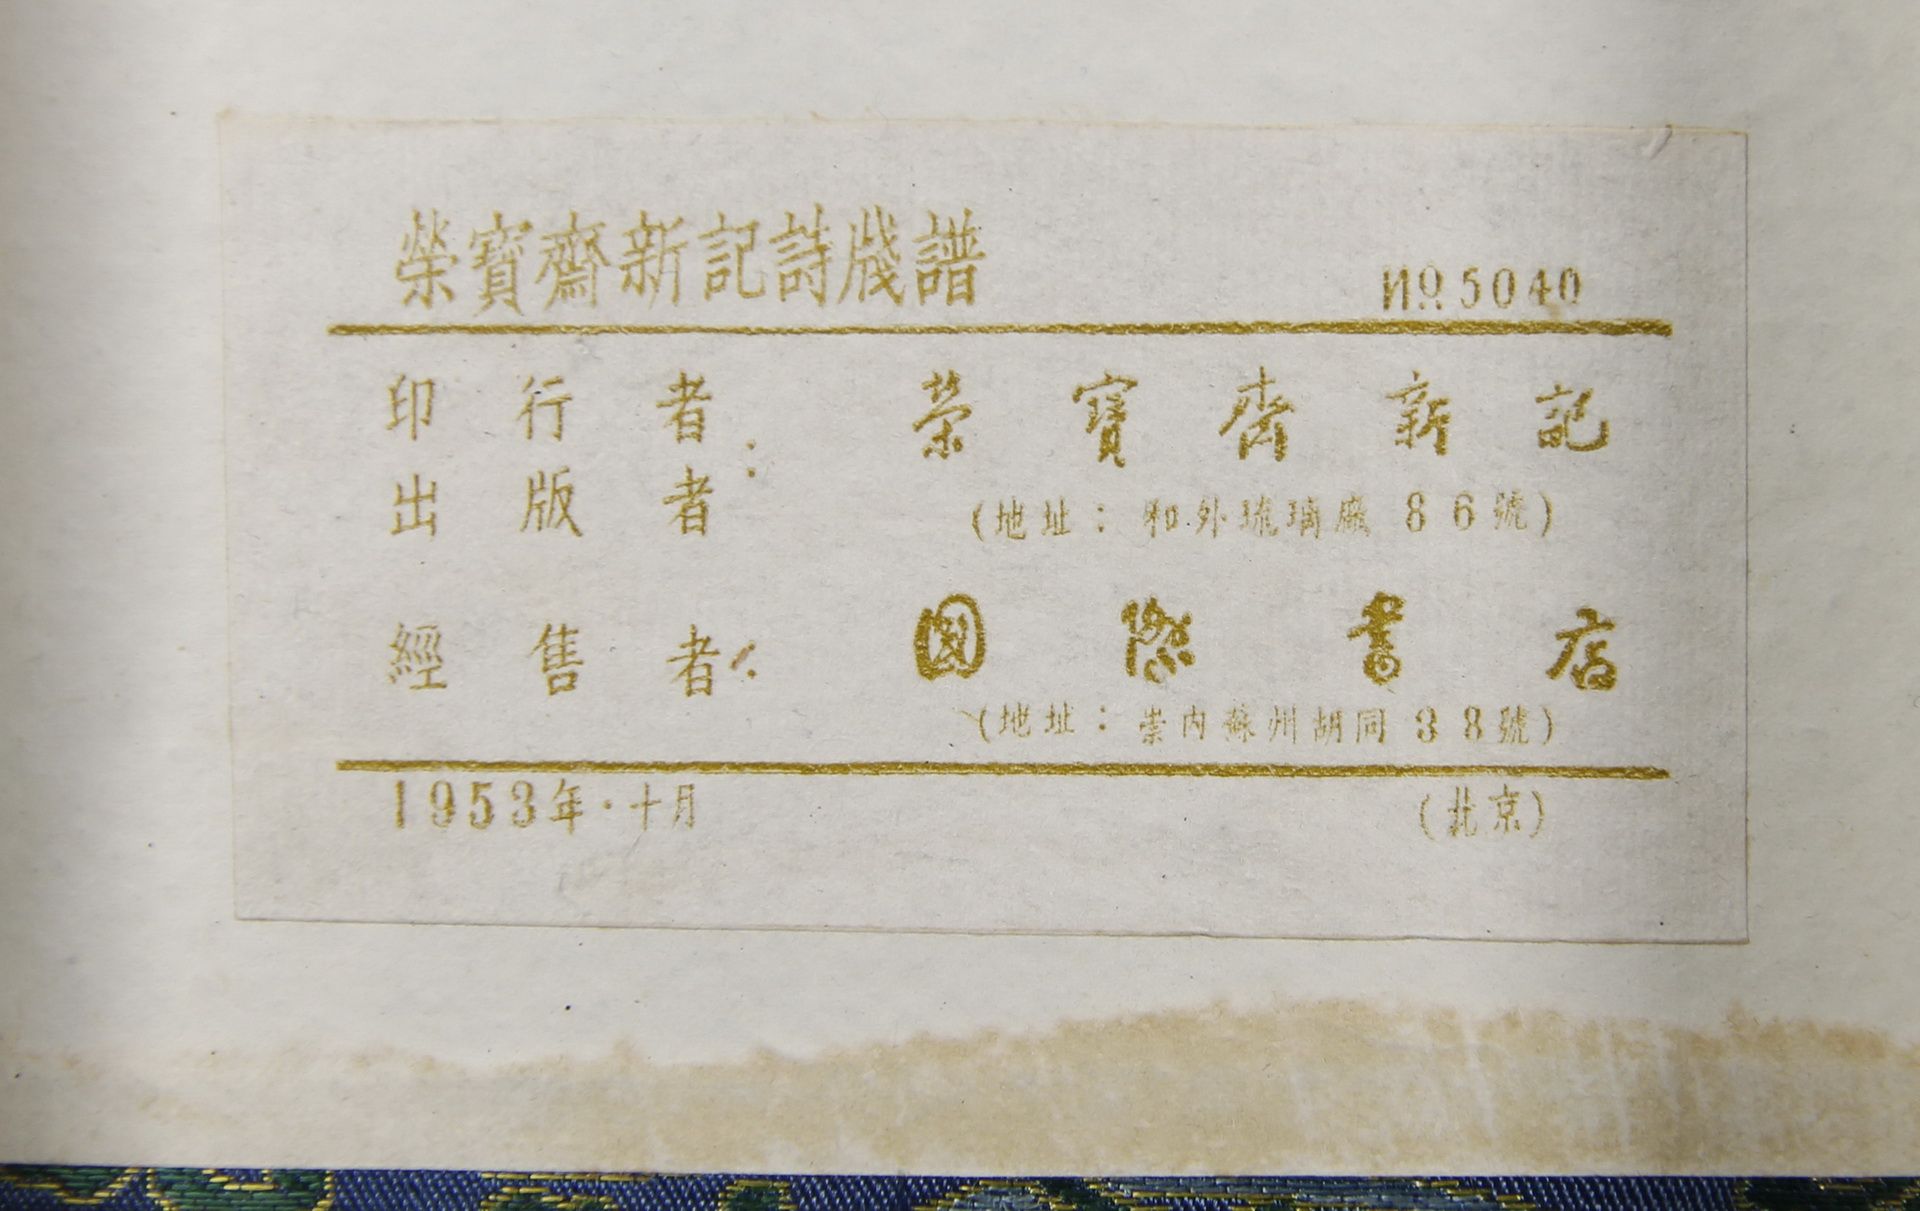 榮寶齋新記詩牋譜
№ 5040
印行者
出版者：
榮寶齋新記
(地址：和外琉璃廠86號)
經售者：
國際書店
(地址：崇內蘇州胡同38號)
1953年·十月
(北京)